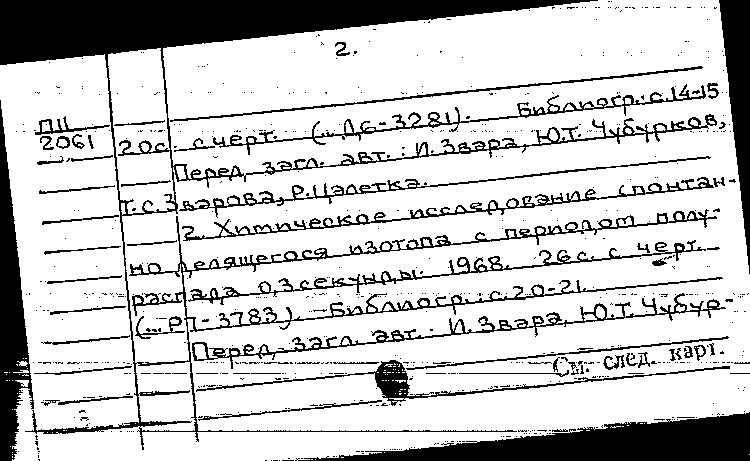 2.
П11
2061
20с. с черт. (... Д6-3281). Библиогр.: с.14-15
Перед загл. авт.: И. Звара, Ю.Т. Чубурков,
Т.С. Зварова, Р. Цалетка.
2. Химическое исследование спонтан-
но делящегося изотопа с периодом полу-
распада 0,3 секунды. 1968. 26 с. с черт.
(... Р7-3783). Библиогр.: с. 20-21.
Перед загл. авт.: И. Звара, Ю.Т. Чубур-
См. след. карт.